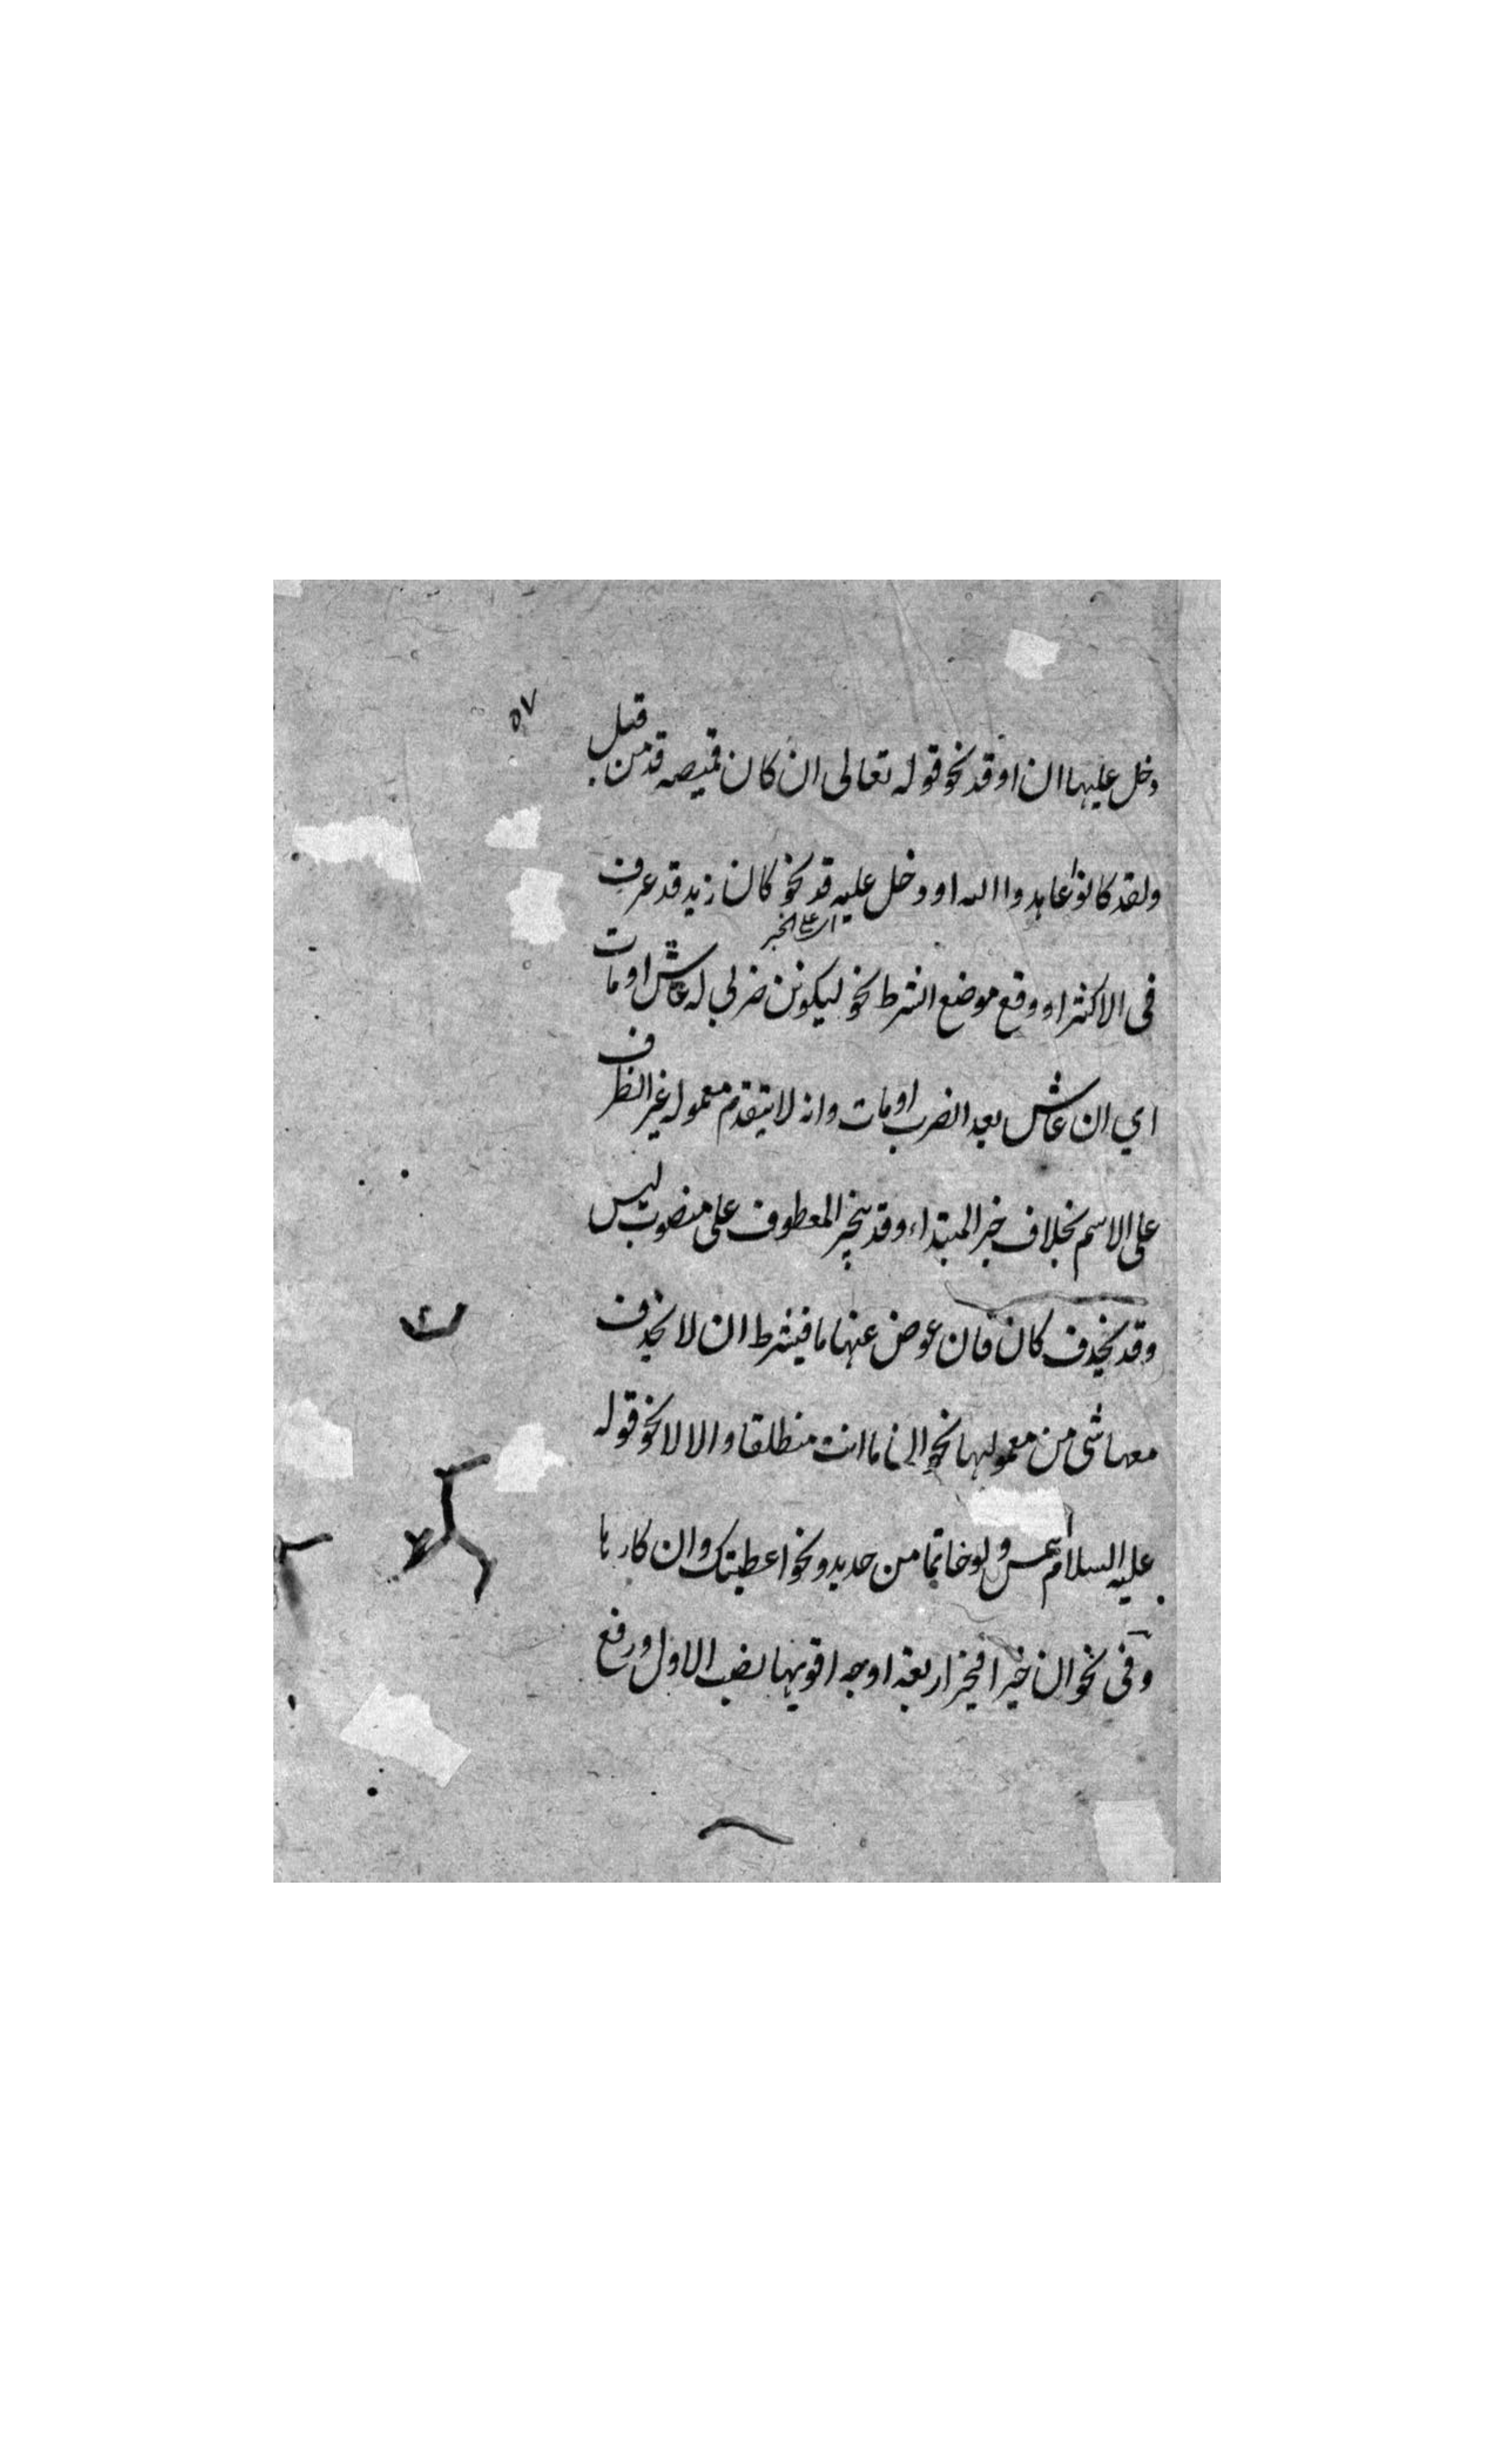 ٥٧
دخل عليها ان او قد نحو قوله تعالى ان كان قميصه قد من قبل
ولقد كانوا عاهدوا الله او دخل عليه قد نحو كان زيد قد عرف
اى على الخبر
فى الاكثر او وقع موضع الشرط نحو ليكونن ضربى له عاش او مات
اي ان عاش بعد الضرب او مات وانه لا يتقدم معموله غير الظرف
على الاسم بخلاف خبر المبتداء وقد ينجر المعطوف على منصوب ليس
وقد يحذف كان فان عوض عنها ما فيشرط ان لا يحذف
معها شئ من معموليها نحو اما انت منطلقا والا لا نحو قوله
عليه السلام التمس ولو خاتما من حديد ونحو اعطيتك وان كارها
وفى نحو ان خيرا فخير اربعة اوجه اقويها نصب الاول ورفع